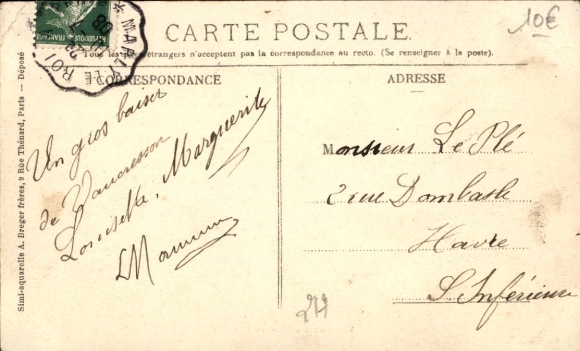 CARTE POSTALE.
10€
Tous les étrangers n'acceptent pas la correspondance au recto. (Se renseigner à la poste).
CORRESPONDANCE
ADRESSE
MARLY-LE-ROI
Un gros baiser
de Vaucresson
Louisette, Marguerite
Maman
Monsieur Le Plé
2 rue Dombasle
Havre
S. Inférieure
Simi-aquarelle A. Breger frères, 9 Rue Thénard, Paris — Déposé